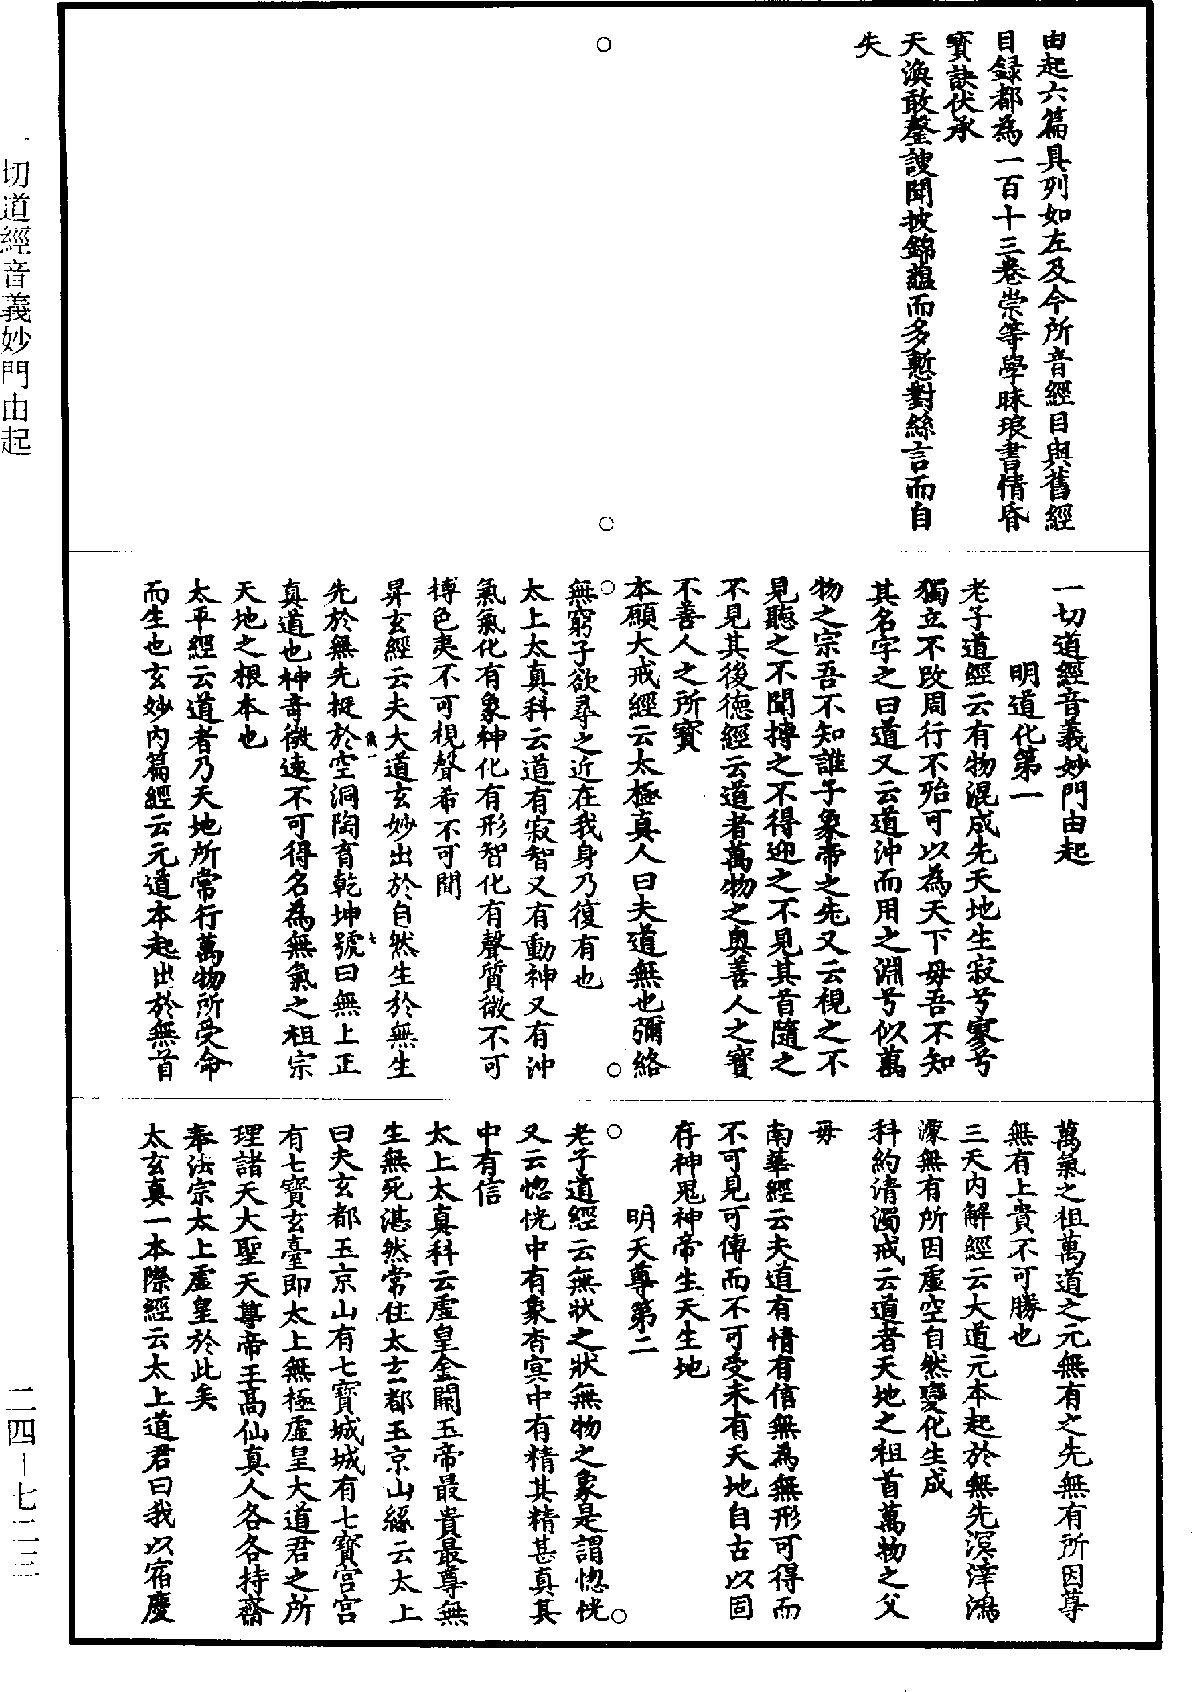 由起六篇具列如左及今所音經目與舊經
目録都為一百十三卷崇等學昧琅書情昏
寳訣伏承
天渙敢罄謏聞披錦蘊而多慙對絲言而自
失
一切道經音義妙門由起
明道化第一
老子道經云有物混成先天地生寂兮寥兮
獨立不改周行不殆可以為天下毋吾不知
其名字之曰道又云道沖而用之淵兮似萬
物之宗吾不知誰子象帝之先又云視之不
見聽之不聞摶之不得迎之不見其首隨之
不見其後德經云道者萬物之奥善人之寳
不善人之所寳
本願大戒經云太極真人曰夫道無也彌絡
無窮子欲尋之近在我身乃復有也
太上太真科云道有寂智又有動神又有沖
氣氣化有象神化有形智化有聲質微不可
摶色夷不可視聲希不可聞
昇玄經云夫大道玄妙出於自然生於無生
先於無先挺於空洞陶育乾坤號曰無上正
真道也神竒微遠不可得名為無氣之祖宗
天地之根本也
太平經云道者乃天地所常行萬物所受命
而生也玄妙内篇經云元道本起出於無首
萬氣之祖萬道之元無有之先無有所因尊
無有上貴不可勝也
三天内解經云大道元本起於無先溟涬鴻
濛無有所因虚空自然變化生成
科約清濁戒云道者天地之祖首萬物之父
毋
南華經云夫道有情有信無為無形可得而
不可見可傳而不可受未有天地自古以固
存神鬼神帝生天生地
明天尊第二
老子道經云無狀之狀無物之象是謂惚恍
又云惚恍中有象杳冥中有精其精甚真其
中有信
太上太真科云虚皇金闕玉帝最貴最尊無
生無死湛然常住太玄都玉京山經云太上
曰夫玄都玉京山有七寳城城有七寳宫宫
有七寳玄臺即太上無極虚皇大道君之所
理諸天大聖天尊帝王高仙真人各各持齋
奉法宗太上虚皇於此矣
太玄真一本際經云太上道君曰我以宿慶
一切道經音義妙門由起
二四－七二三